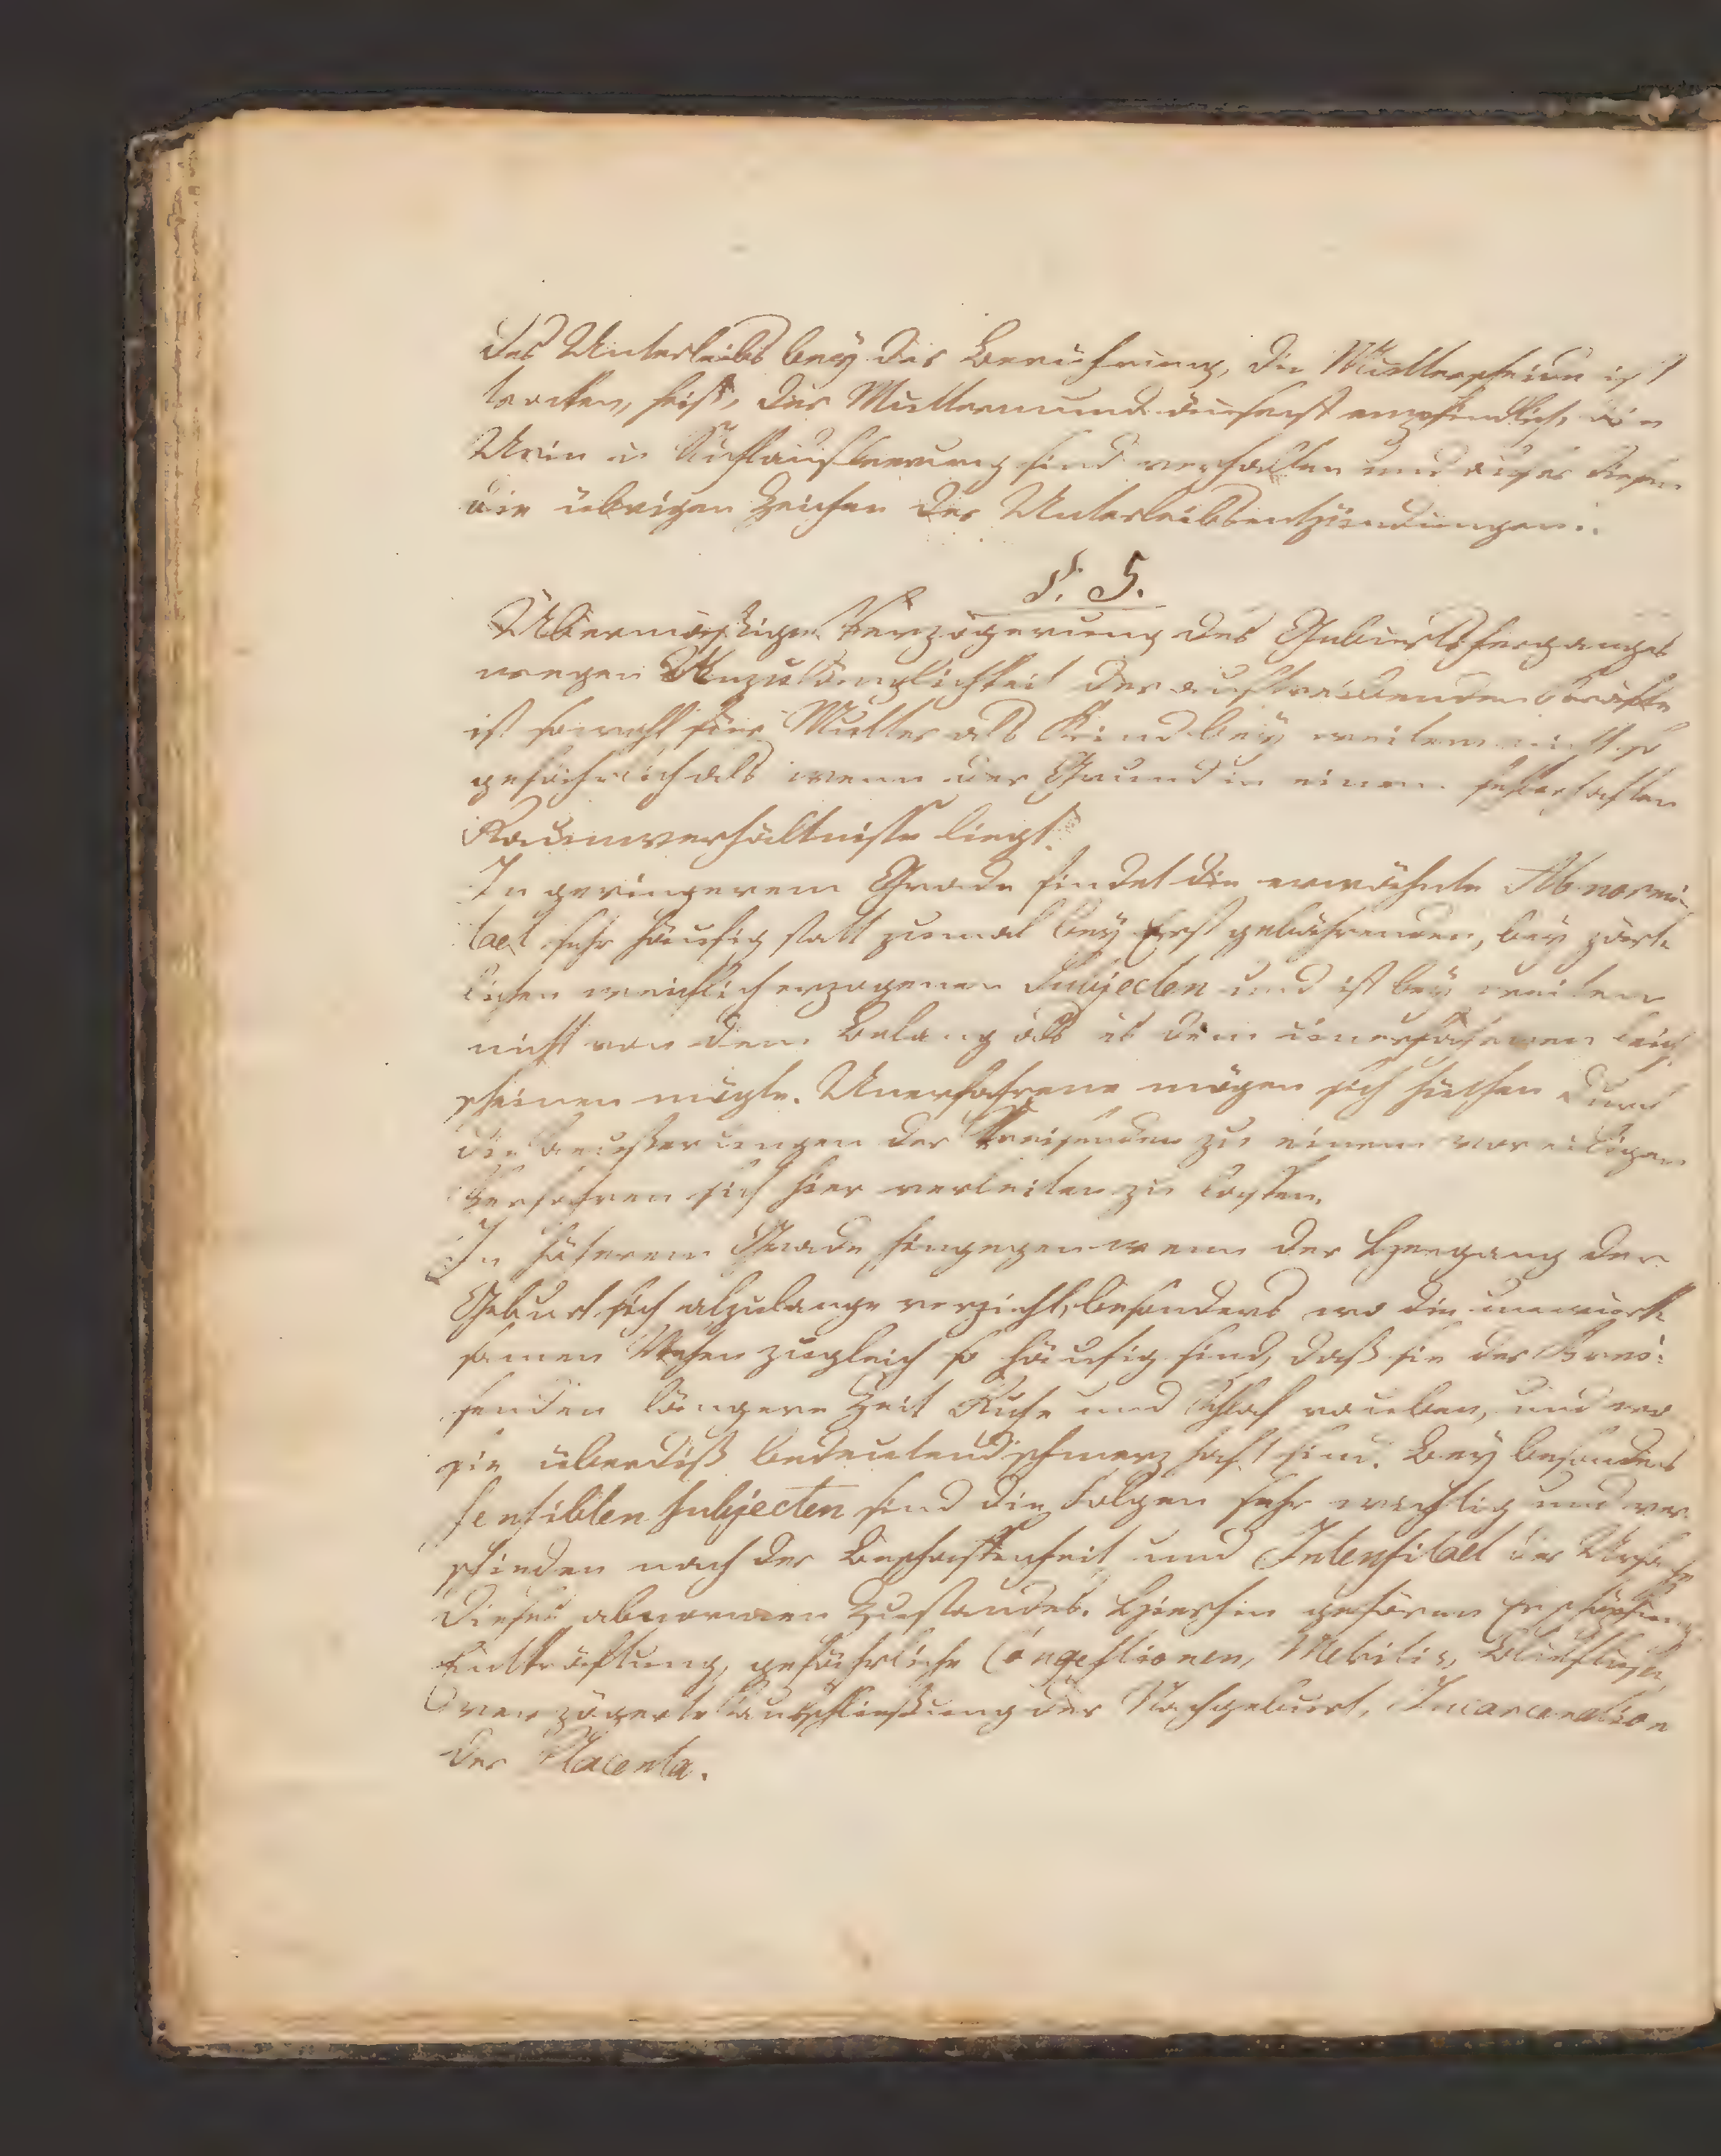 des Unterleibs bey der Berührung, die Mutterscheide ist
trocken, heiß, der Muttermund äußerst empfindlich, die
Urin u. Stuhlausleerung sind verhalten und außer diesem
die übrigen Zeichen der Unterleibsentzündungen.
§. 5.
Übermäßige Verzögerung des Geburtsherganges
wegen Unzulänglichkeit der austreibenden Kräfte
ist sowohl für Mutter als Kind bey weitem nicht so
gefährlich als wenn der Grund in einem fehlerhaften
Raumverhältnisse liegt.
In geringerem Grade findet die erwähnte Abnormi-
taet sehr häufig statt zumal bey Erstgebährenden, bey zärt-
lichen weichlich erzogenen Subjecten und ist bey weitem
nicht von dem Belang als es dem unerfahrenen
scheinen mögte. Unerfahrene mögen sich hüthen durch
die Aeußerungen der Kreisenden zu einem voreiligen
Verfahren sich hier verleiten zu laßen.
In höherem Grade hingegen wenn der Hergang der
Geburt sich alzulange verzieht, besonders wo die unwirk-
samen Wehen zugleich so häufig sind, daß sie der Krei-
senden längere Zeit Ruhe und Schlaf rauben, und wo
sie überdiß bedeutend schmerzhaft sind. Bey besonders
sensiblen Subjecten sind die Folgen sehr wichtig und ver-
schieden nach der Beschaffenheit und Intensitaet der Ursache
dieses abnormen Zustandes. Hierhin gehören Erschöpfung
Entkräftung, gefährliche Congestionen, Metritis, Blutflüße,
verzögerte Ausschließung der Nachgeburt, Incarceration
der Placenta.